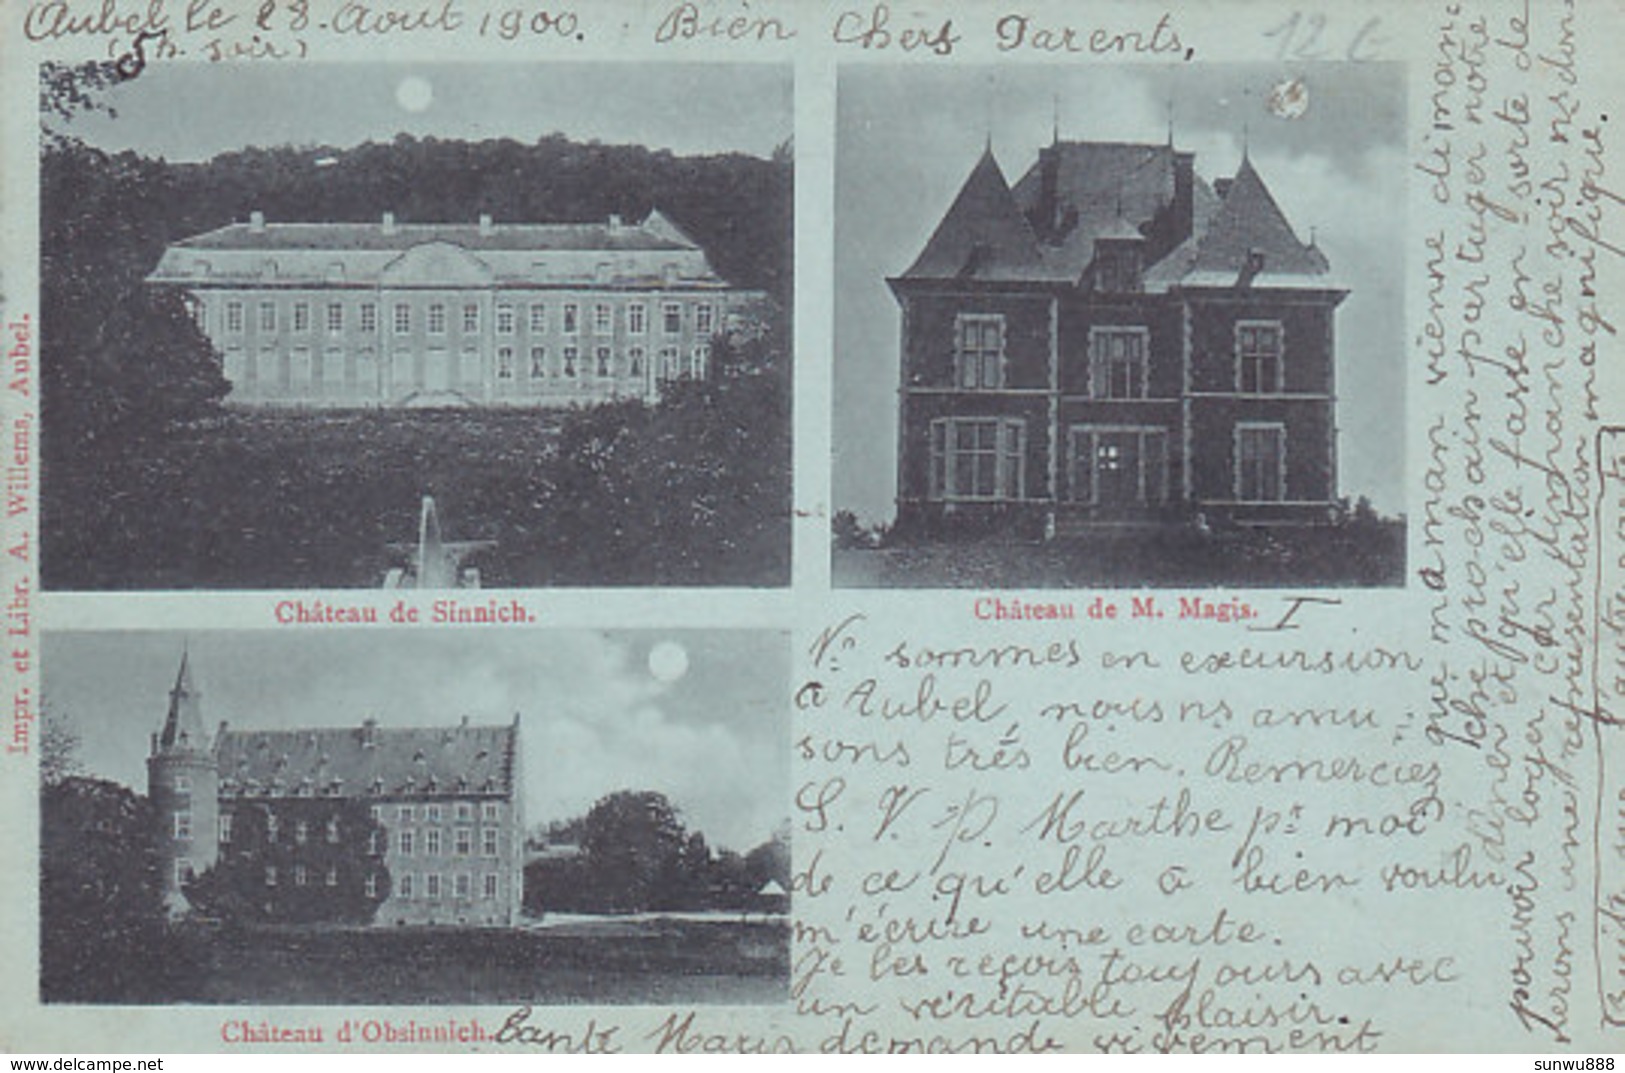 Aubel, le 28. Août 1900. Bien Chers Parents,
(5 h. soir)
12 €
Impr. et Libr. A. Willems, Aubel.
Château de Sinnich.
Château de M. Magis. I
Château d'Obsinnich.
Ns sommes en excursion
à Aubel, nous ns amu=
sons très bien. Remerciez
S. V. P. Marthe pr moi
de ce qu'elle a bien voulu
m'écrire une carte.
Je les reçois toujours avec
un véritable plaisir.
Tante Maria demande vivement
que maman vienne diman:
che prochain partager notre
dîner et qu'elle fasse en sorte de
pouvoir loger car dimanche soir ns don:
nerons une représentation magnifique.
Suite sur l'autre carte
delcampe.net
sunwu888